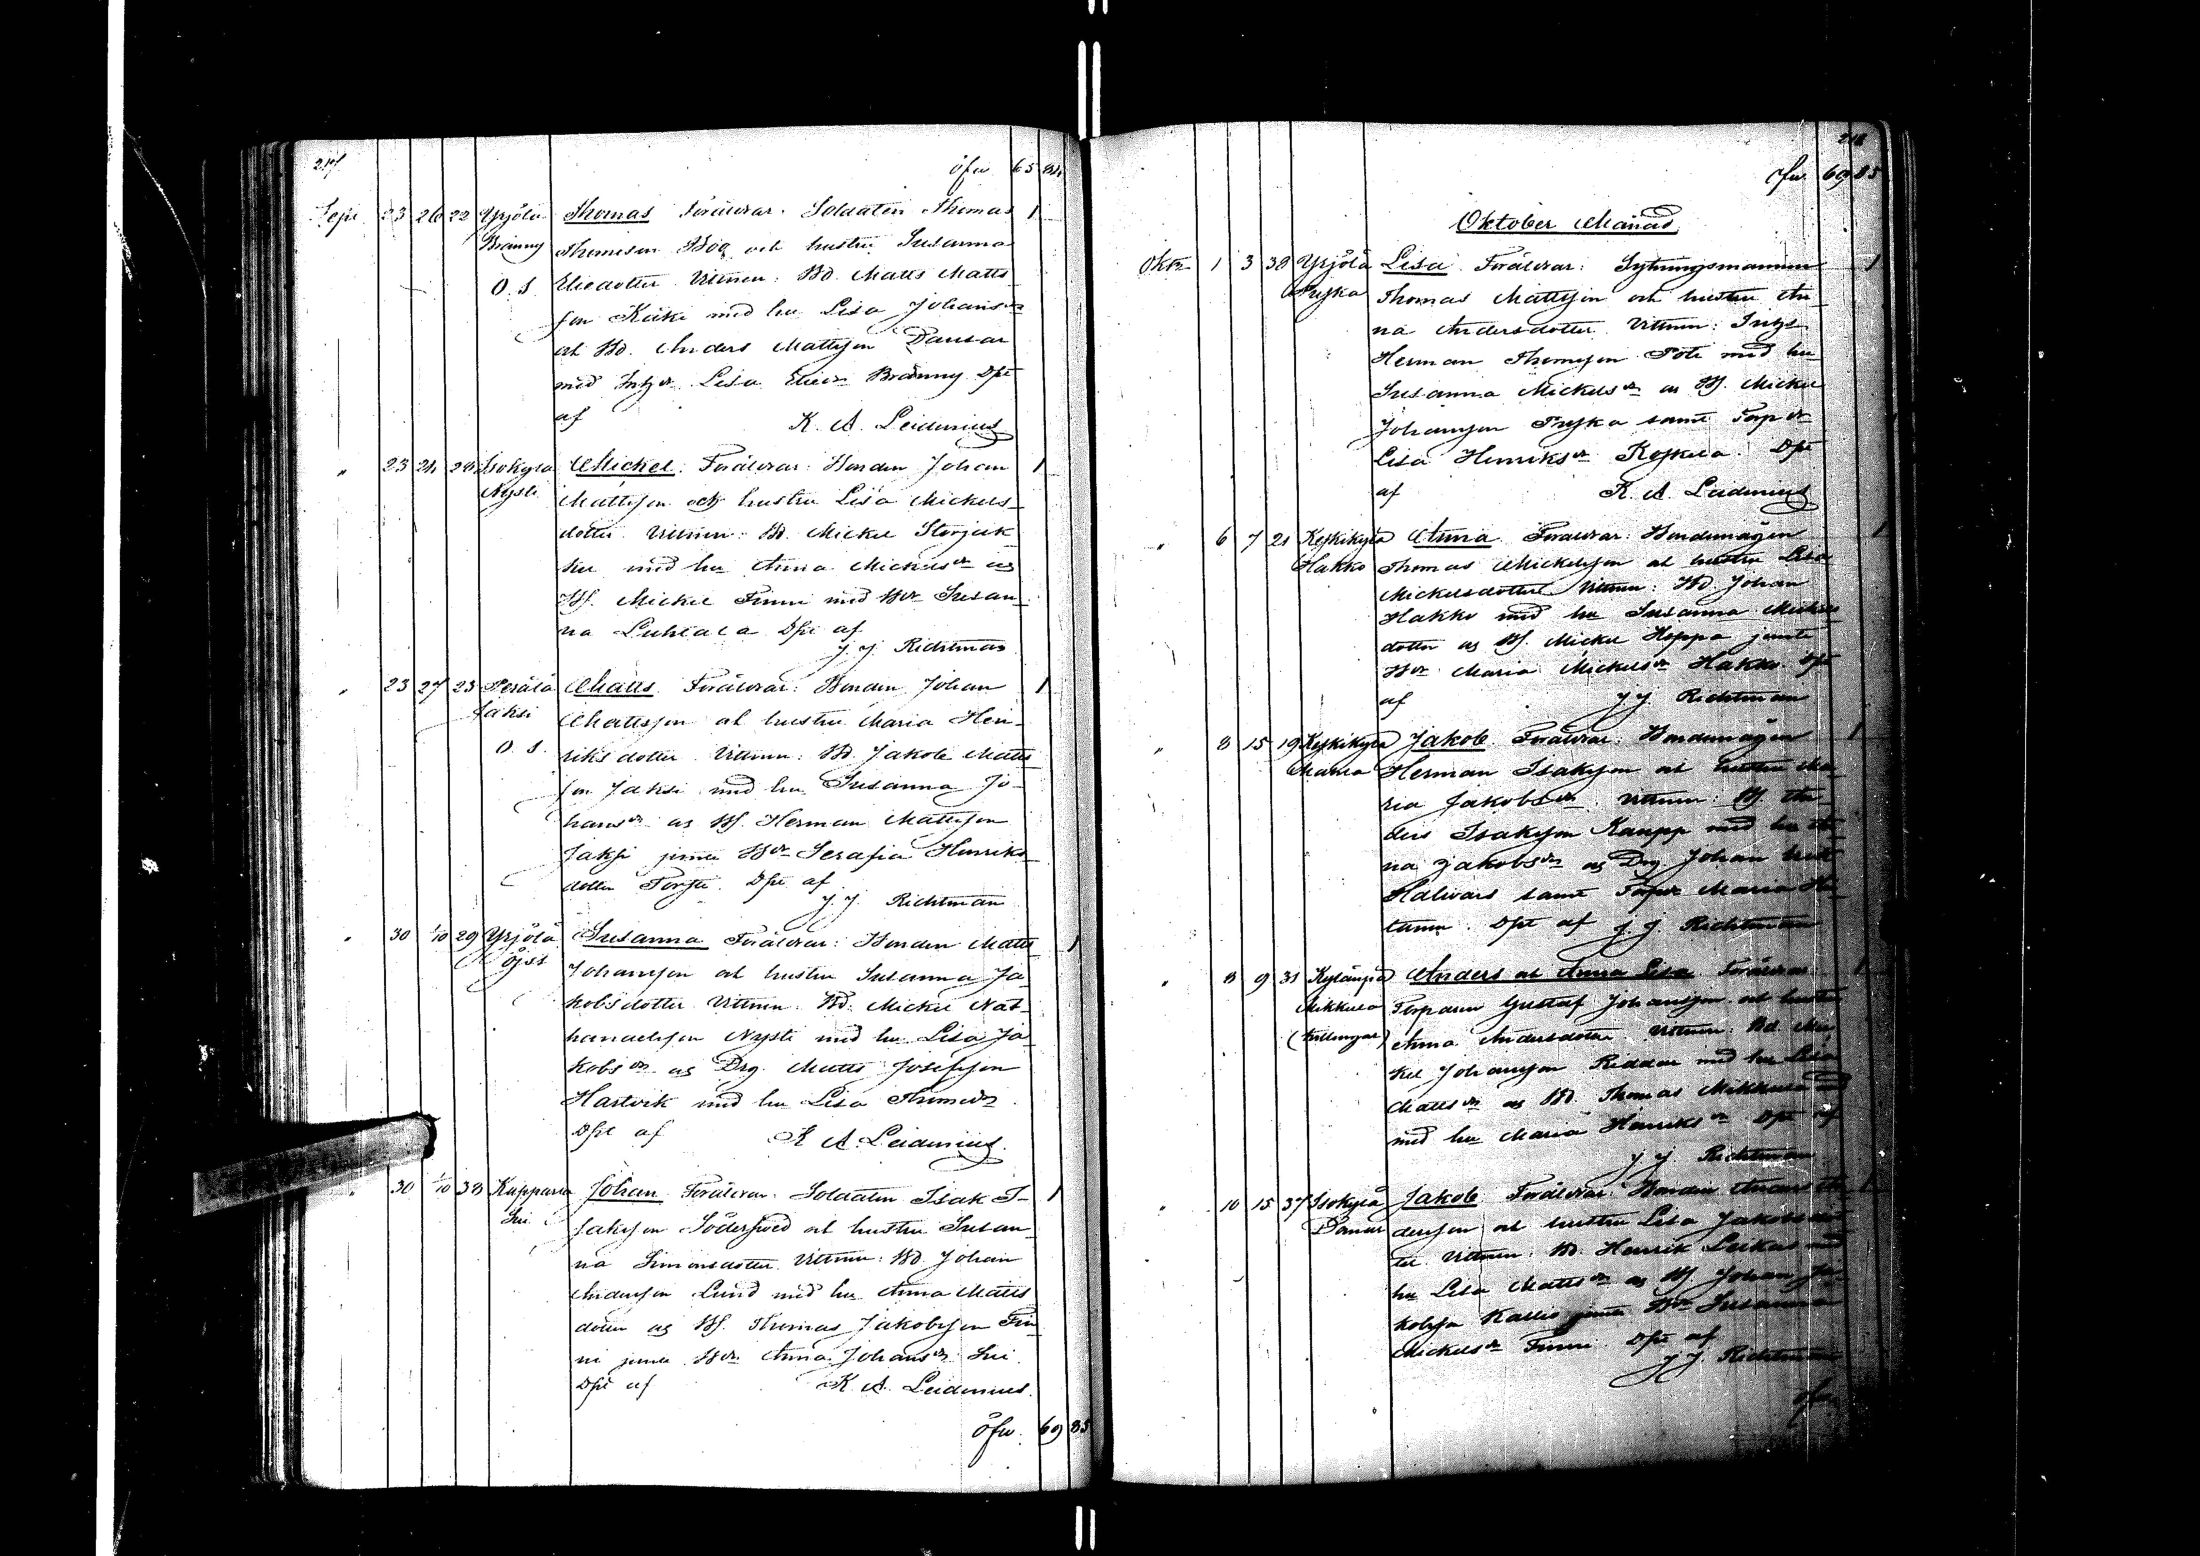 217
öfv. 65 84
Sept. 23 26 22 Yrjölä Thomas Föräldrar: Soldaten Thomas 1
Bränny Thomesson Båg och hustru Susanna
O. S. Eliedotter Vittnen: Bd. Matts Matts
son Kiike med hu Lisa Johansdr
at Bd. Anders Mattsson Dansar
med Inhsdr Lisa Eliedr Bränny Dpt
af K. A. Leidenius
" 23 24 24 Isokyrö Mickel. Föräldrar: Bonden Johan 1
Nysti Mattsson och hustru Lisa Mickels-
dotter Vittnen: Bd. Mickel
med hu Anna Mickelsdr as
Bs. Mickel Finni med Bdr Susan-
na Luhtala Dpt af
J. J. Richtman
" 23 27 23 Perälä Matts. Föräldrar: Bonden Johan 1
Jaksi Mattsson at hustru Maria Hen-
O. S. riksdotter Vittnen: Bd. Jakob Matts
son Jaksi med hu Susanna Jo-
hansdr as Bs. Herman Mattsson
Jaksi jemte Bdr Serafia Henriks-
dotter Dpt af
J. J. Richtman
" 30 1/10 29 Yrjölä Susanna Föräldrar: Bonden Matts 1
Öjst Johansson at hustru Susanna Ja-
kobsdotter Vittnen: Bd. Mickel Nat-
hanaelsson Nysti med hu Lisa Ja-
kobsdr as Drg. Matts Josefsson
Hartvik med hu Lisa Thomedr
Dpt af K. A. Leidenius.
30 1/10 38 Kapparla Johan Föräldrar: Soldaten Isak I- 1
saksson at hustru Susan-
na Simonsdotter Vittnen: Bd. Johan
Andersson Lund med hu Anna Matts
dotter as Bs. Thomas Jakobsson Fin
ni jemte Bdr Anna Johansdr
Dpt af K. A. Leidenius.
Öfv. 69 85
218
öfv. 69 85
Oktober Månad
Oktr 1 3 38 Yrjölä Lisa Föräldrar: Sytningsmannen 1
Pryska Thomas Mattsson och hustru An-
na Andersdotter Vittnen: Inhs
Herman Thomesson Poti med hu
Susanna Mickelsdr as Bs. Mickel
Johansson Pryska samt Torpdr
Lisa Henriksdr Koskela Dpt
af K. A. Leidenius
" 6 7 21 Keskikylä Anna Föräldrar: Bondemågen 1
Hakko Thomas Mickelsson at hustru Lisa
Mickelsdotter Vittnen: Bd Johan
Hakko med hu Susanna Mickels
dotter as Bs. Mickel Hoppa jemte
Bdr Maria Mickelsdr Hakko Dpt
af J. J. Richtman
" 8 15 19 Keskikylä Jakob Föräldrar: Bondemågen 1
Herman Isaksson at hustru Ma-
ria Jakobsdr Vittnen: Bs. An-
ders Isaksson Kaupp med hu An-
na Jakobsdr as Drg. Johan
Halvars samt Torpdr Maria
Dpt af J. J. Richtman
" 8 9 31 Kylänpää Anders at Anna Lisa Föräldrar 1
Mikkula Torparen Gustaf Johansson at hustru
(tvillingar) Anna Andersdotter Vittnen: Bd. Mic-
kel Johansson Riddar med hu Lisa
Mattsdr as Bd. Thomas Mikkula
med hu Maria Henriksdr Dpt af
J. J. Richtman
" 10 15 37 Isokylä Jakob Föräldrar: Bonden Anders An- 1
dersson at hustru Lisa Jakobsdot
ter Vittnen: Bd. Henrik Leikas med
hu Lisa Mattsdr as Bs Johan Ja-
kobson Kallio jemte Bdr Susanna
Mickelsdr Finni Dpt af
J. J. Richtman
öfv.